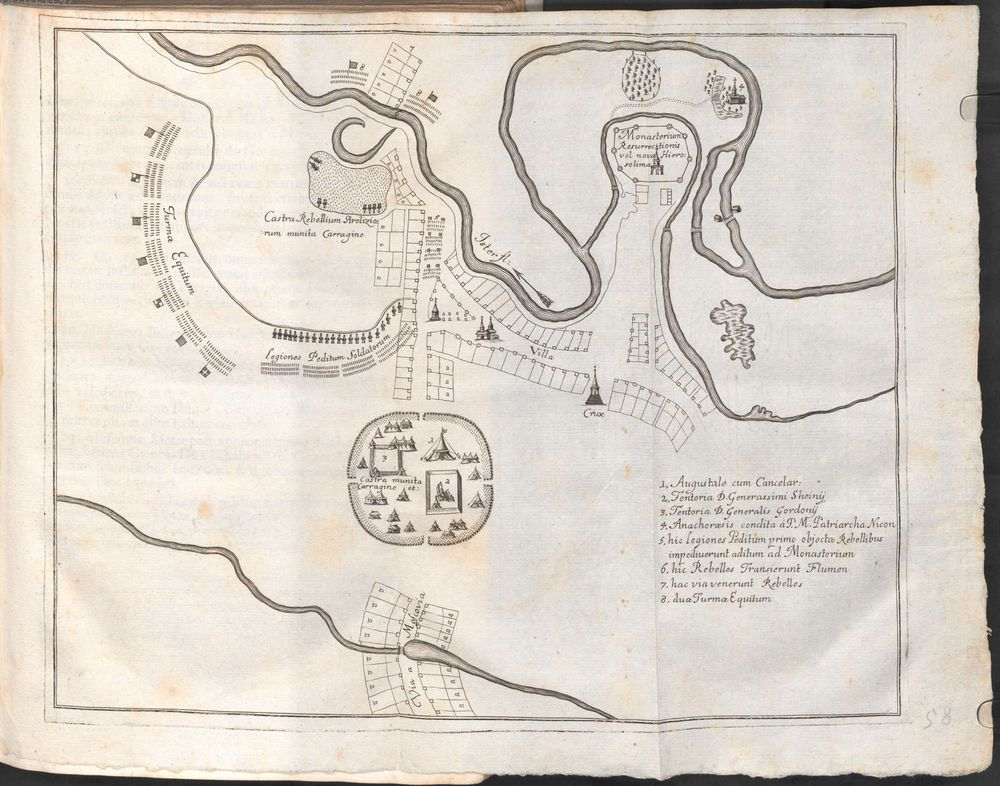 7
8
8
6
4
Monasterium
Resurrectionis
vel nova Hiero:
solima
Castra Rebellium Strelizio
:rum munita Carragine
5
Turma Equitum
Ister fl.
Legiones Peditum Soldatorum
Villa
Crux
1
3
2
Castra munita
Carragine et:
1, Augustale cum Cancelar:
2, Tentoria D. Generassimi Sheinij
3, Tentoria D. Generalis Gordonij
4. Anachoræsis condita á P. M. Patriarcha Nicon
5, hic Legiones Peditum primo objectæ Rebellibus
impediuerunt aditum ad Monasterium
6. hic Rebelles Transierunt Flumen
7. hac via venerunt Rebelles
8. duæ Turmæ Equitum
Via a Moscovia
58